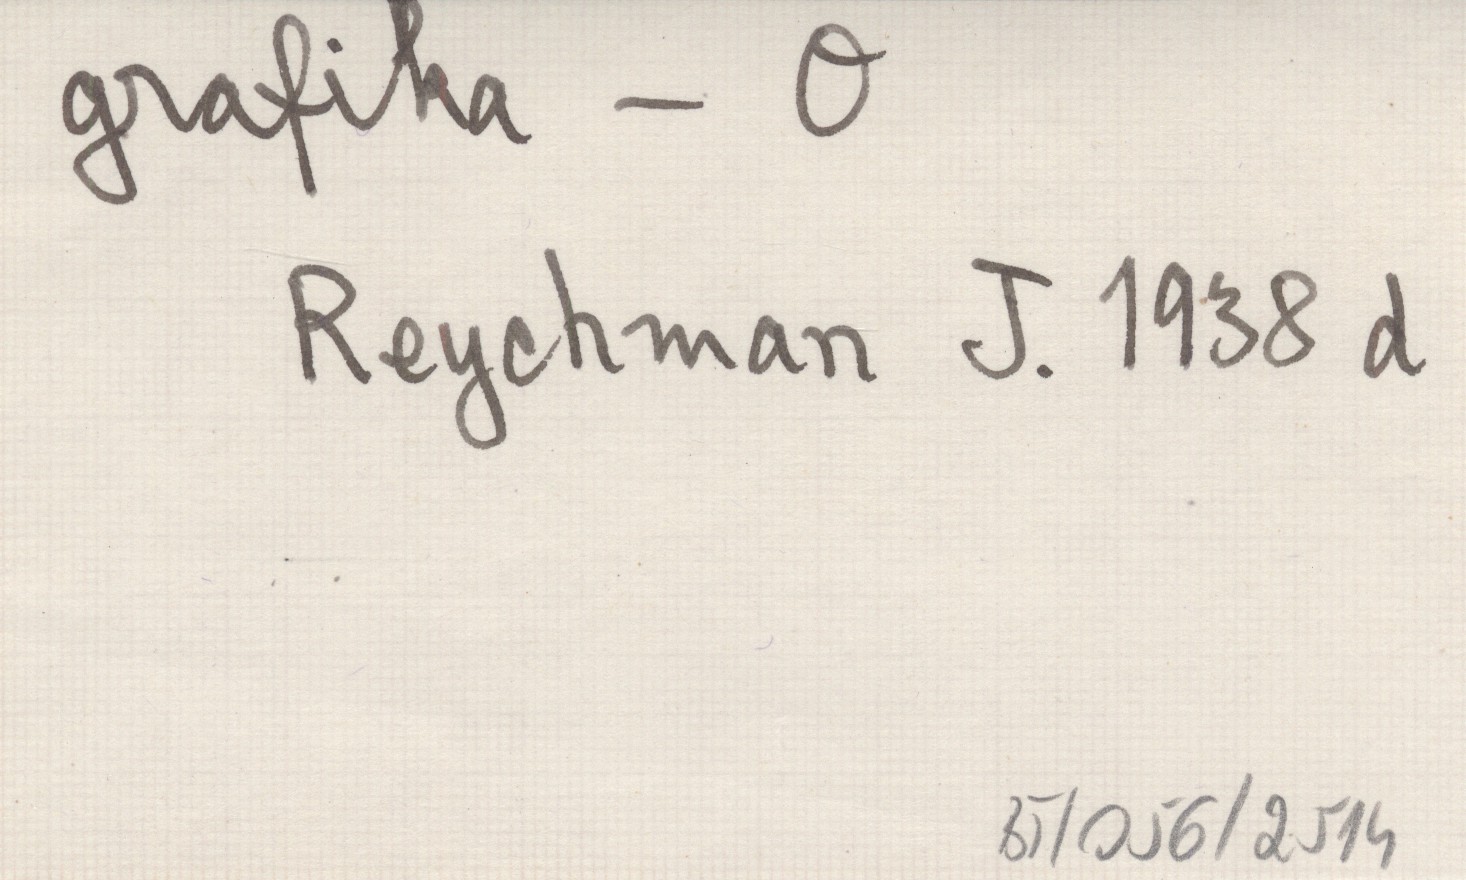 grafika – O
Reychman J. 1938 d
35/056/2514